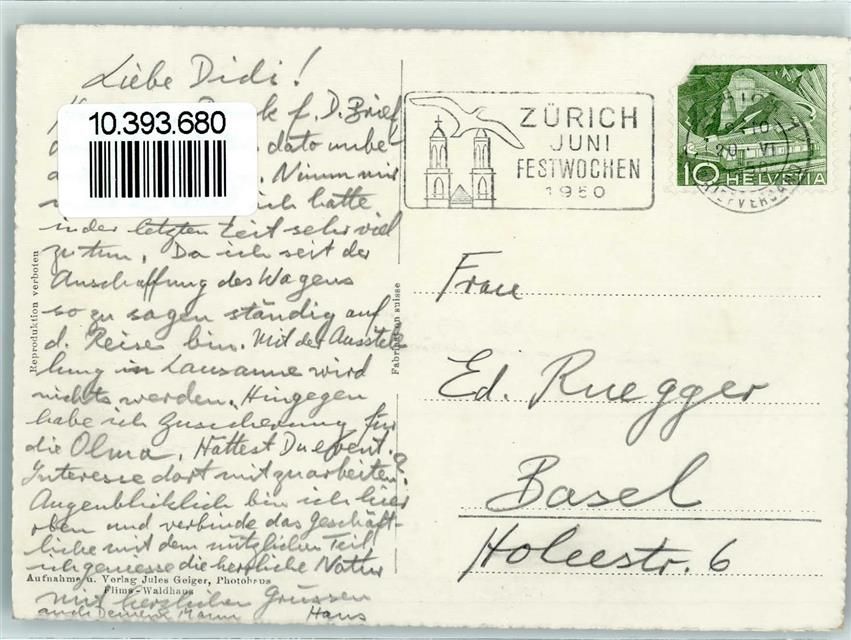 Liebe Didi!
k f. D. Brief
10.393.680
dato unbe-
Nimm mir
ich hatte
in der letzten Zeit sehr viel
zu tun. Da ich seit der
Anschaffung des Wagens
so zu sagen ständig auf
d. Reise bin. Mit der Ausstel-
lung in Lausanne wird
nichts werden. Hingegen
habe ich Zusicherung für
die Olma. Hättest Du event.
Interesse dort mitzuarbeiten?
Augenblicklich bin ich hier
oben und verbinde das Geschäft-
liche mit dem nützlichen Teil
ich geniesse die herrliche Natur
Aufnahme u. Verlag Jules Geiger, Photohaus
Flims-Waldhaus
mit herzlichen Grüssen
auch Deinem Mann Hans
Reproduktion verboten
Fabrication suisse
ZÜRICH
JUNI
FESTWOCHEN
1950
10 HELVETIA
Frau
Ed. Ruegger
Basel
Holeestr. 6